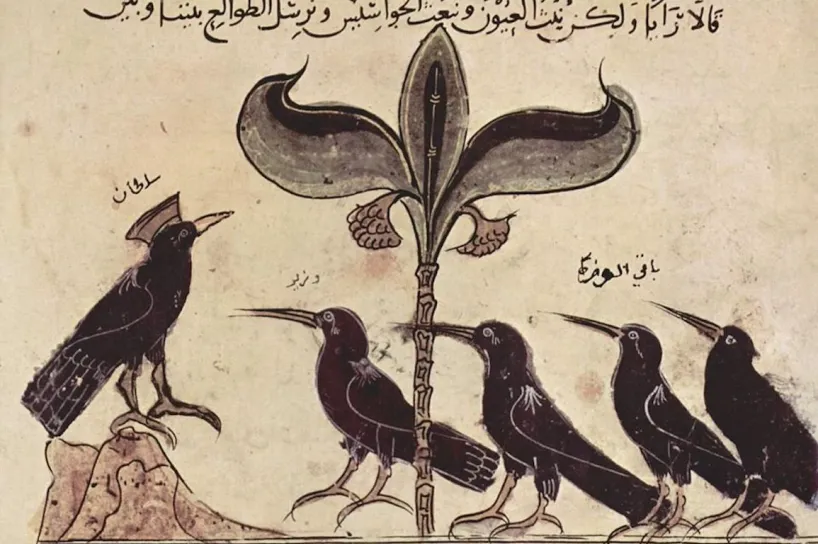 قالا رأيا ولكن نبث العيون ونبعث الجواسيس ونرسل الطوالع بيننا وبين
سلطان
وزير
باقي الوزرا